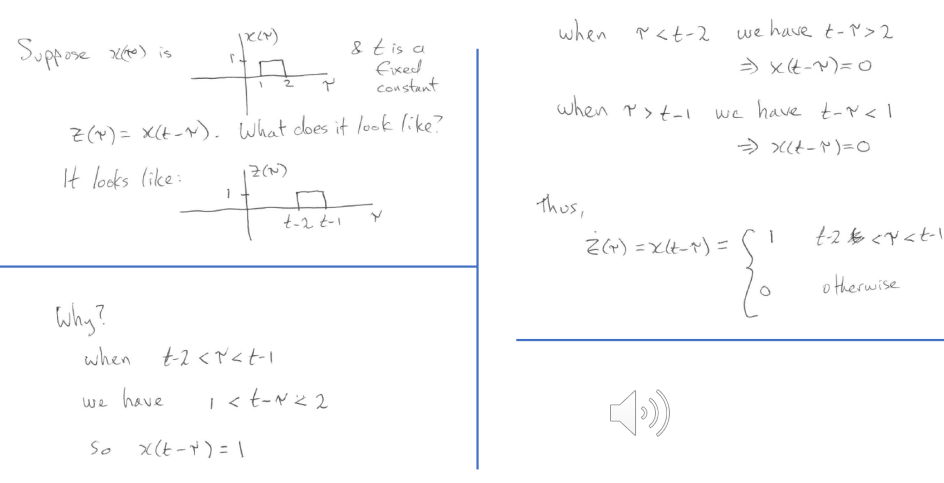 Suppose x(τ) is
x(τ)
1
1 2 τ
& t is a
fixed
constant
z(τ) = x(t-τ). What does it look like?
It looks like:
z(τ)
1
t-2 t-1 τ
Why?
when t-2 < τ < t-1
we have 1 < t-τ < 2
so x(t-τ) = 1
when τ < t-2 we have t-τ > 2
⇒ x(t-τ) = 0
when τ > t-1 we have t-τ < 1
⇒ x(t-τ) = 0
Thus,
z(τ) = x(t-τ) = { 1 t-2 < τ < t-1
0 otherwise